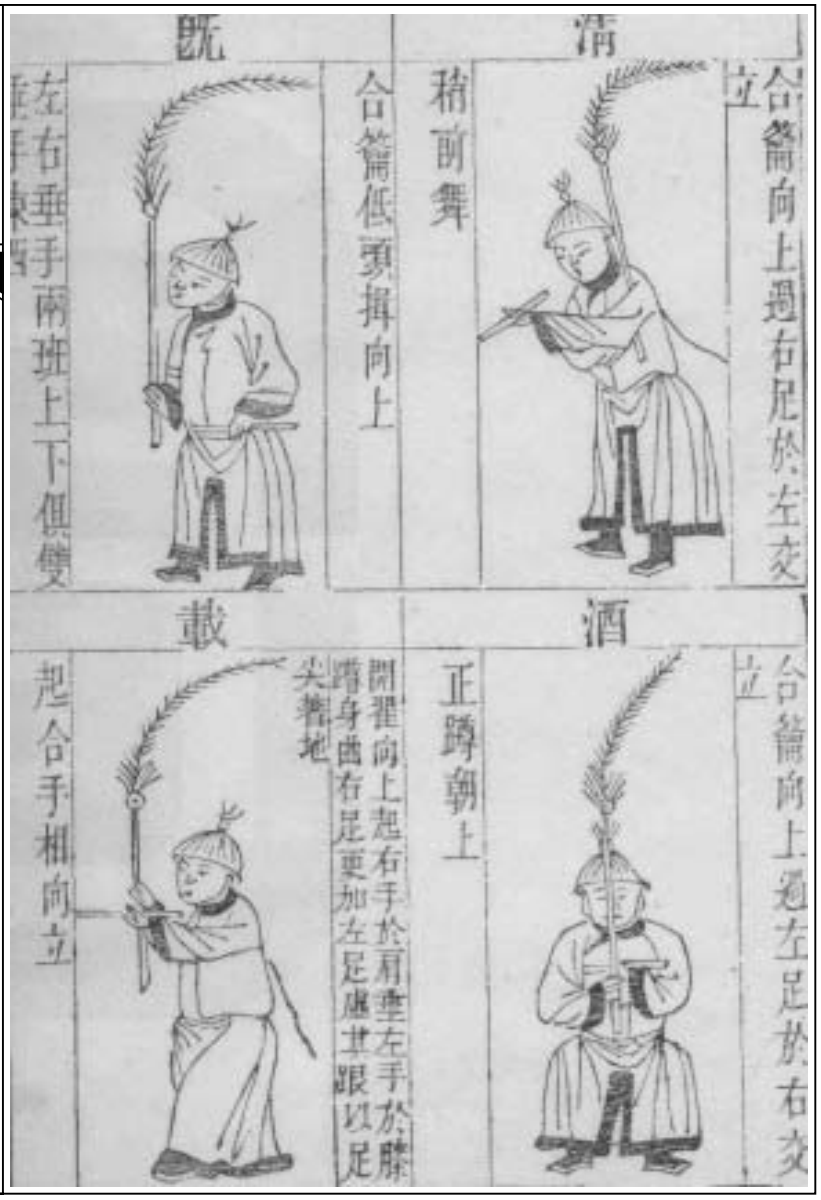 清
合籥向上過右足於左交
立
稍前舞
既
合籥低頭揖向上
左右垂手兩班上下俱雙
垂手東西
酒
合籥向上過左足於右交
立
正蹲朝上
載
開翟向上起右手於肩垂左手於膝
蹲身曲右足更加左足處其跟以足
尖著地
起合手相向立